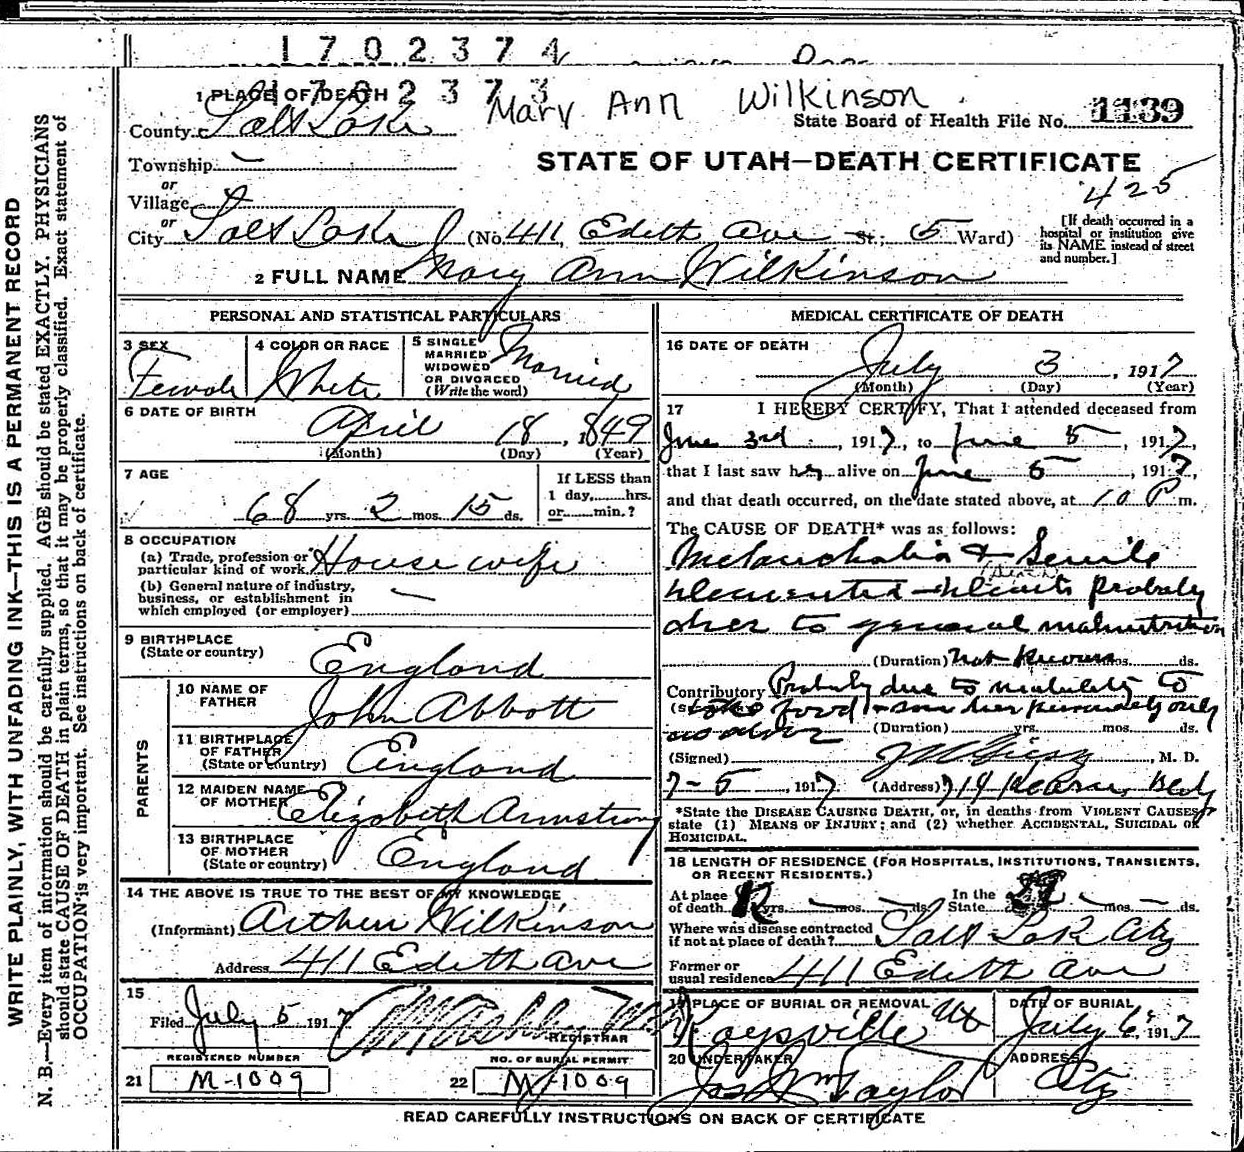 1702374
1702373
Mary Ann Wilkinson
1 PLACE OF DEATH
County Salt Lake
State Board of Health File No. 1139
Township —
STATE OF UTAH—DEATH CERTIFICATE
or
Village
425
or
City Salt Lake (No. 411, Edith Ave St.; 5 Ward)
[If death occurred in a hospital or institution give its NAME instead of street and number.]
2 FULL NAME Mary Ann Wilkinson
PERSONAL AND STATISTICAL PARTICULARS
3 SEX Female
4 COLOR OR RACE White
5 SINGLE MARRIED WIDOWED OR DIVORCED (Write the word) Married
6 DATE OF BIRTH
April 18, 1849
(Month) (Day) (Year)
7 AGE
68 yrs. 2 mos. 15 ds.
If LESS than 1 day,......hrs. or......min.?
8 OCCUPATION
(a) Trade, profession or particular kind of work. House wife
(b) General nature of industry, business, or establishment in which employed (or employer) —
9 BIRTHPLACE
(State or country) England
PARENTS
10 NAME OF FATHER John Abbott
11 BIRTHPLACE OF FATHER (State or country) England
12 MAIDEN NAME OF MOTHER Elizabeth Armstrong
13 BIRTHPLACE OF MOTHER (State or country) England
14 THE ABOVE IS TRUE TO THE BEST OF MY KNOWLEDGE
(Informant) Arthur Wilkinson
Address 411 Edith Ave
15
Filed July 5 1917
REGISTRAR
REGISTERED NUMBER
NO. OF BURIAL PERMIT
21 M-1009
22 M-1009
MEDICAL CERTIFICATE OF DEATH
16 DATE OF DEATH
July 3, 1917
(Month) (Day) (Year)
17 I HEREBY CERTIFY, That I attended deceased from
June 3rd, 1917, to June 5, 1917,
that I last saw her alive on June 5, 1917,
and that death occurred, on the date stated above, at 10 P m.
The CAUSE OF DEATH* was as follows:
Melancholia & Senile
probably
to general malnutrition
(Duration) not known mos. ds.
Contributory Probably due to inability to
food & saw her only
(Duration) yrs. mos. ds.
as above
(Signed) , M. D.
7-5, 1917 (Address) 714 Kearns Bldg
*State the DISEASE CAUSING DEATH, or, in deaths from VIOLENT CAUSES, state (1) MEANS OF INJURY; and (2) whether ACCIDENTAL, SUICIDAL OR HOMICIDAL.
18 LENGTH OF RESIDENCE (FOR HOSPITALS, INSTITUTIONS, TRANSIENTS, OR RECENT RESIDENTS.)
At place of death yrs. — mos. — ds. In the State — mos. — ds.
Where was disease contracted if not at place of death? Salt Lake City
Former or usual residence 411 Edith Ave
19 PLACE OF BURIAL OR REMOVAL Kaysville Ut
DATE OF BURIAL July 6, 1917
20 UNDERTAKER Jos Wm Taylor
ADDRESS City
READ CAREFULLY INSTRUCTIONS ON BACK OF CERTIFICATE
WRITE PLAINLY, WITH UNFADING INK—THIS IS A PERMANENT RECORD
N. B.—Every item of information should be carefully supplied. AGE should be stated EXACTLY. PHYSICIANS
should state CAUSE OF DEATH in plain terms, so that it may be properly classified. Exact statement of
OCCUPATION is very important. See instructions on back of certificate.